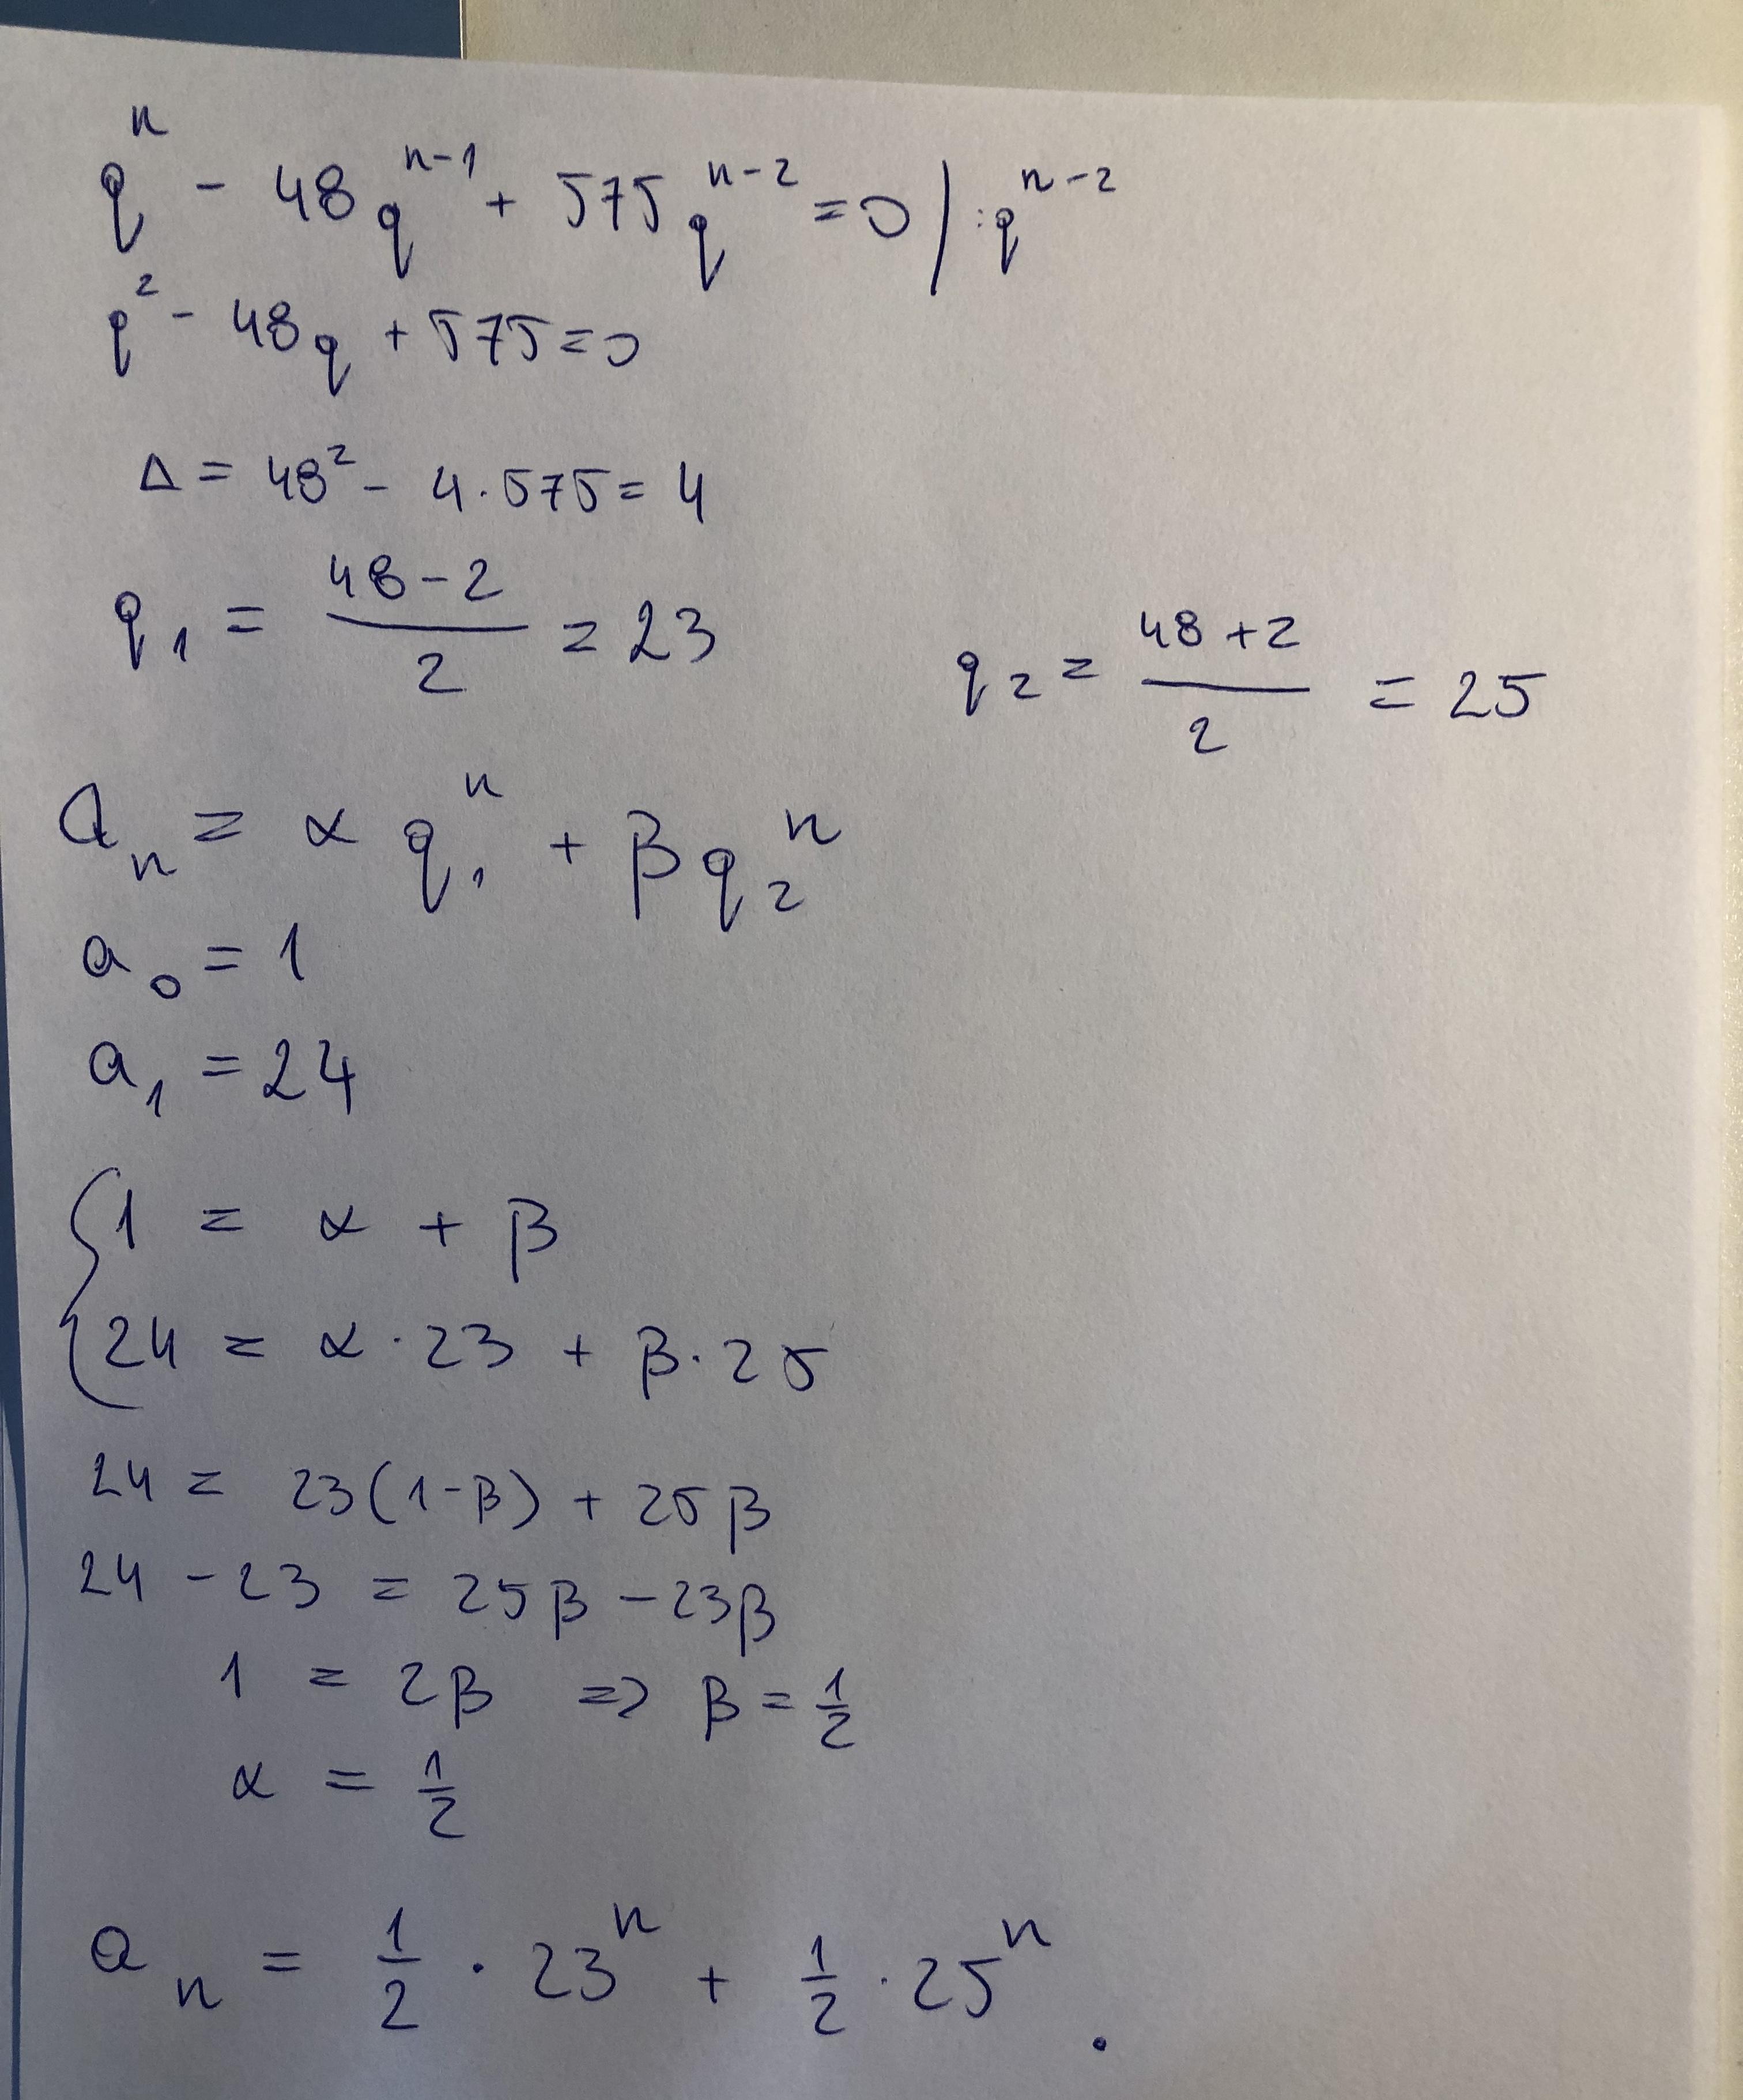 qⁿ - 48qⁿ⁻¹ + 575qⁿ⁻² = 0 | :qⁿ⁻²
q² - 48q + 575 = 0
Δ = 48² - 4·575 = 4
q₁ = (48-2)/2 = 23    q₂ = (48+2)/2 = 25
aₙ = α q₁ⁿ + β q₂ⁿ
a₀ = 1
a₁ = 24
{ 1 = α + β
24 = α·23 + β·25
24 = 23(1-β) + 25β
24 - 23 = 25β - 23β
1 = 2β => β = 1/2
α = 1/2
aₙ = 1/2 · 23ⁿ + 1/2 · 25ⁿ.